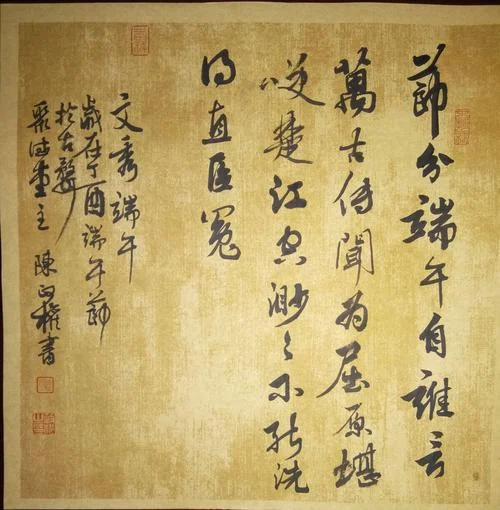 節分端午自誰言
萬古傳聞为屈原堪
咲楚江空渺々不能洗
得直臣冤
文秀端午
歲在丁酉端午節
於古婺
堂主 陳正權書